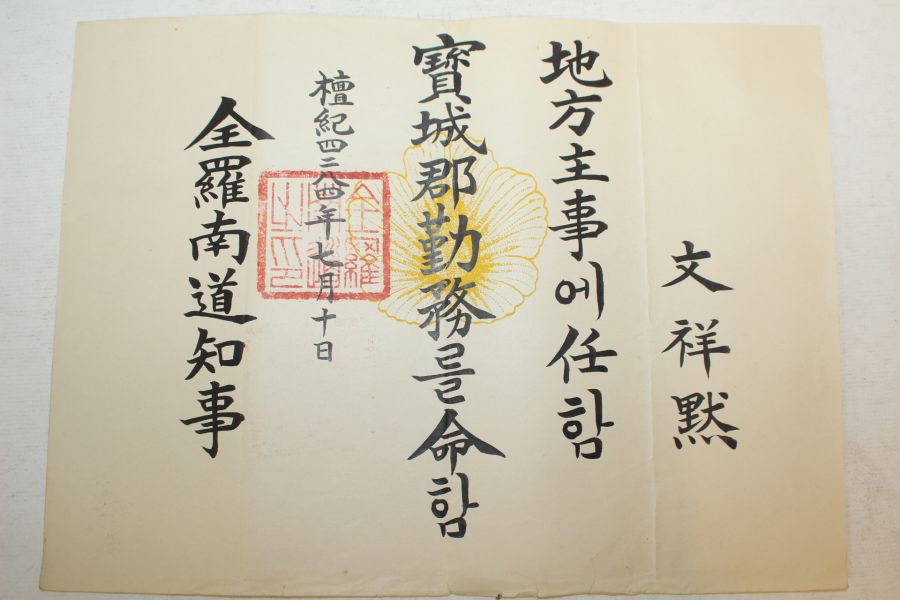 文祥黙
地方主事에任함
寶城郡勤務를命함
檀紀四二八四年七月十日
全羅南道知事